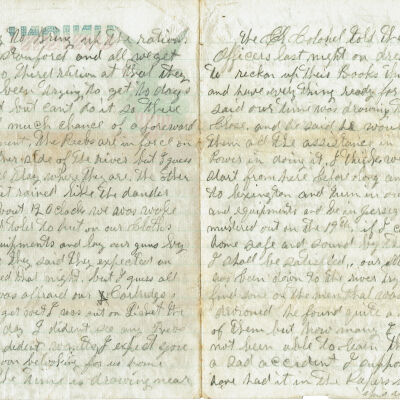 to bring up the rations
Crawford and all we get
a third ration at that they
been trying to get to days
but can't do it so there
much chance of a foreward
ment, The Rebs are in force on
ther side of the river but I guess
they where they are. The other
it rained like the dander
about 12 O Clock we was woke
told to put on our Cloths
quipments and lay our guns by
they said they expected an
that night. but I guess all
was afraid our Cartridges
get wet, I was out on Picket the
day I dident see any Rebs
dident want to, I expect some
your beloveing for us home
he time is drawing near
The Colonel told the
Officers last night on dress
to reckon up their Books
and have everything ready for
said our time was drawing to
Close. and he said he would
them all the assistance in
power in doing it, I think we
start from here before long and
to Lexington and turn in our
and equipments and be in Jersey
mustered out on the 19th. if I
home safe and sound by the
I shall be satisfied, our
has been down to the river try
find some of the men that was
drowned. he found quite a
of them but how many I
not been able to learn
a sad accident I suppose
have had it in the Papers